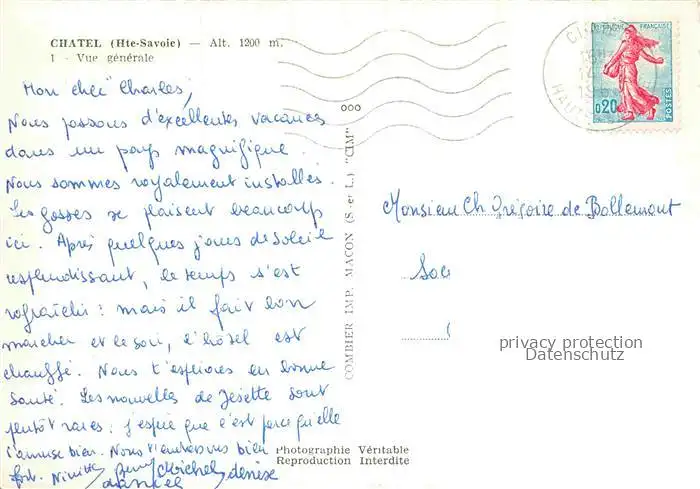 CHATEL (Hte-Savoie) — Alt. 1200 m.
1 - Vue générale
Mon cher Charles,
Nous passons d'excellentes vacances
dans un pays magnifique.
Nous sommes royalement installés.
Les gosses se plaisent beaucoup
ici. Après quelques jours de soleil
resplendissant, le temps s'est
rafraîchi : mais il fait bon
marcher et le soir, l'hôtel est
chauffé. Nous t'espérons en bonne
santé. Les nouvelles de Josette sont
plutôt rares : j'espère que c'est parce qu'elle
s'amuse bien. Nous t'embrassons bien
fort. Michel denise
daniel
ooo
COMBIER IMP. MACON (S.-et-L.) "CIM"
Photographie Véritable
Reproduction Interdite
REPUBLIQUE FRANÇAISE
0,20
POSTES
Monsieur Ch Grégoire de Bollemont
privacy protection
Datenschutz